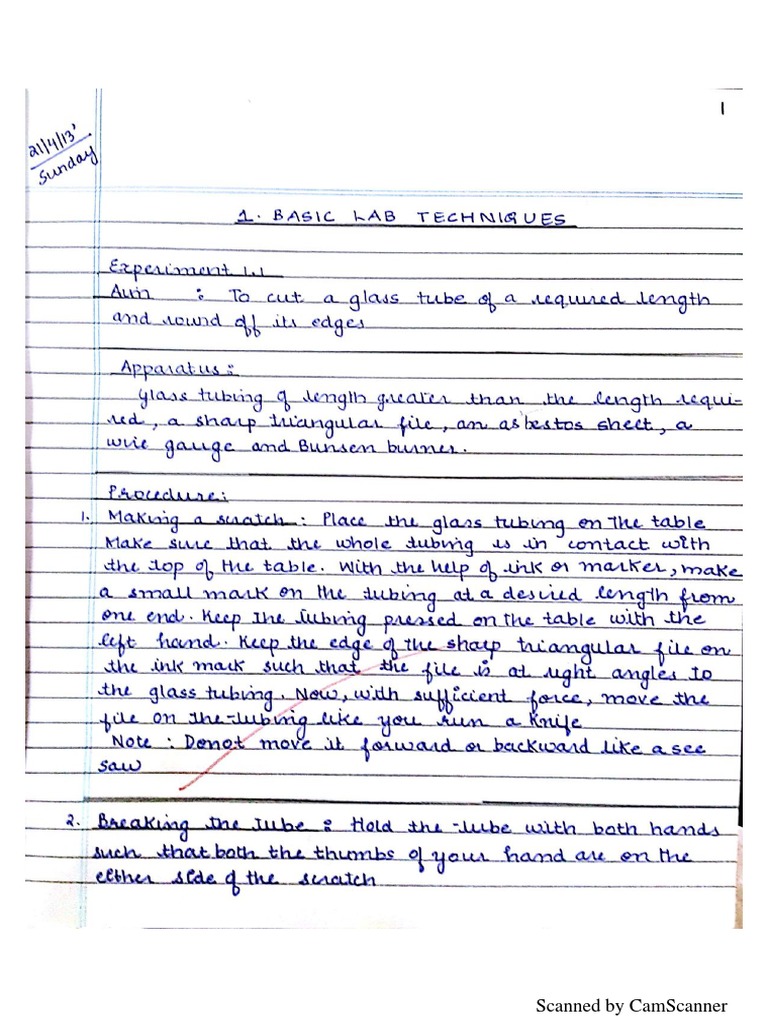 1
21/4/13'
Sunday
1. BASIC LAB TECHNIQUES
Experiment 1.1
Aim : To cut a glass tube of a required length
and round off its edges
Apparatus :
Glass tubing of length greater than the length requi-
red, a sharp triangular file, an asbestos sheet, a
wire gauge and Bunsen burner.
Procedure:
1. Making a scratch : Place the glass tubing on the table
Make sure that the whole tubing is in contact with
the top of the table. With the help of ink or marker, make
a small mark on the tubing at a desired length from
one end. Keep the tubing pressed on the table with the
left hand. Keep the edge of the sharp triangular file on
the ink mark such that the file is at right angles to
the glass tubing. Now, with sufficient force, move the
file on the tubing like you run a knife
Note : Donot move it forward or backward like a see
saw
2. Breaking the tube : Hold the tube with both hands
such that both the thumbs of your hand are on the
either side of the scratch
Scanned by CamScanner